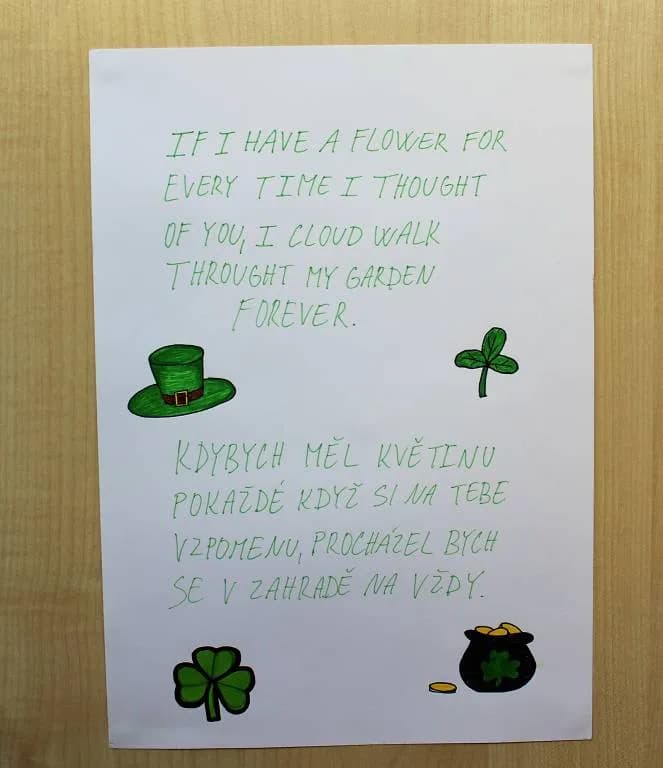 IF I HAVE A FLOWER FOR
EVERY TIME I THOUGHT
OF YOU, I CLOUD WALK
THROUGHT MY GARDEN
FOREVER.
KDYBYCH MĚL KVĚTINU
POKAŽDÉ KDYŽ SI NA TEBE
VZPOMENU, PROCHÁZEL BYCH
SE V ZAHRADĚ NA VŽDY.